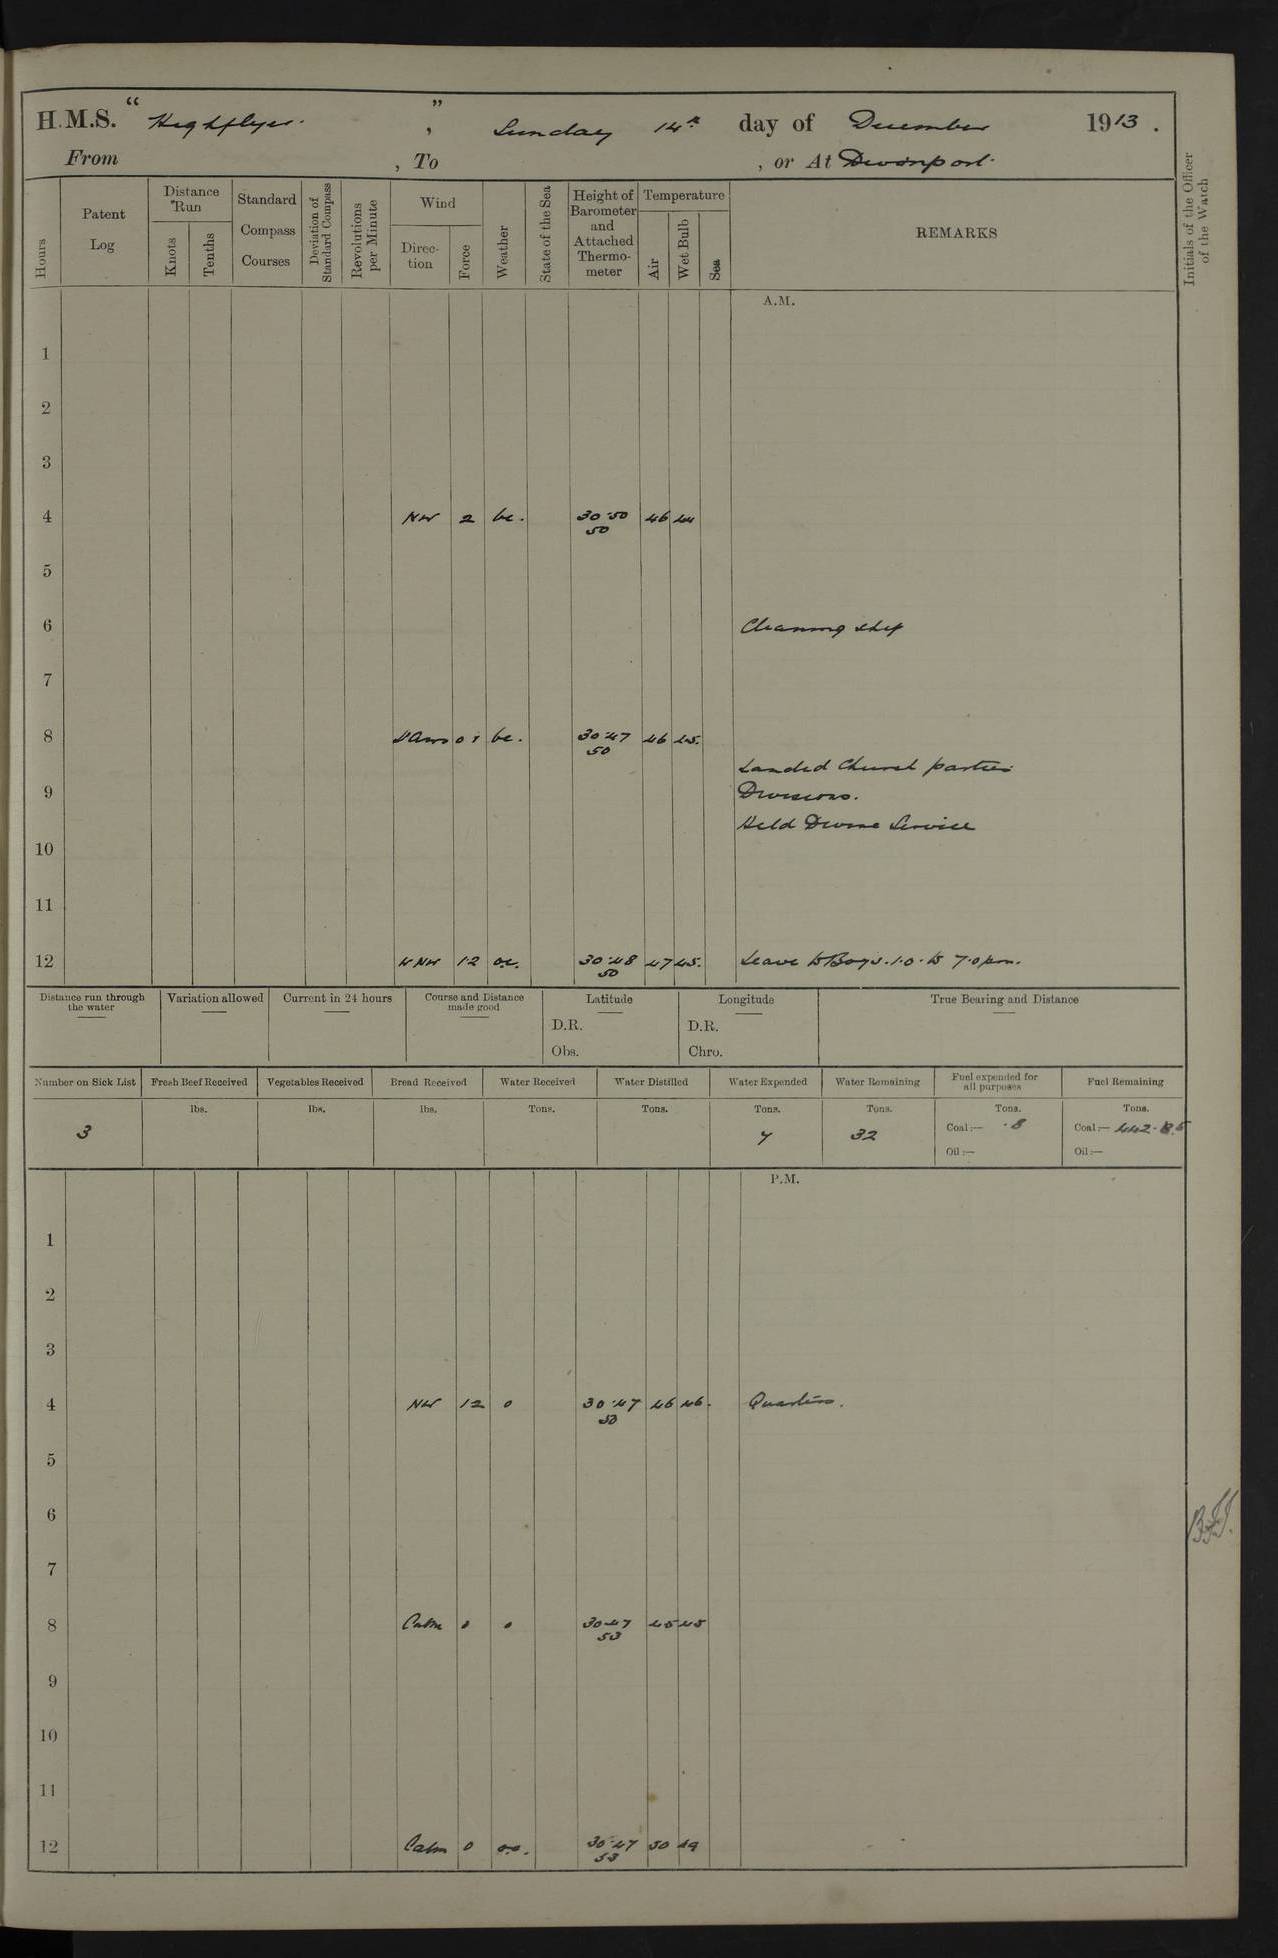 H.M.S. “ Highflyer. ” , Sunday 14th day of December 1913 .
From , To , or At Devonport.
Hours
Patent Log
Distance Run
Knots
Tenths
Standard Compass Courses
Deviation of Standard Compass
Revolutions per Minute
Wind
Direc-tion
Force
Weather
State of the Sea
Height of Barometer and Attached Thermo-meter
Temperature
Air
Wet Bulb
Sea
REMARKS
Initials of the Officer of the Watch
A.M.
1
2
3
4 NW 2 bc. 30·50 46 44
50
5
6 Cleaning ship
7
8 0·1 bc. 30·47 46 45.
50
Landed Church parties
9 Divisions.
Held Divine Service
10
11
12 WNW 1·2 o.c. 30·48 47 45. Leave to Boys. 1·0· to 7·0 pm.
50
Distance run through the water
Variation allowed
Current in 24 hours
Course and Distance made good
Latitude
D.R.
Obs.
Longitude
D.R.
Chro.
True Bearing and Distance
Number on Sick List
Fresh Beef Received
Vegetables Received
Bread Received
Water Received
Water Distilled
Water Expended
Water Remaining
Fuel expended for all purposes
Fuel Remaining
lbs. lbs. lbs. Tons. Tons. Tons. Tons. Tons. Tons.
3 7 32 Coal:— ·8 Coal:— 442·85
Oil:— Oil:—
P.M.
1
2
3
4 NW 1·2 o 30·47 46 46. Quarters.
50
5
6
7
8 Calm 0 o 30·47 45 45
53
9
10
11
12 Calm 0 o.c. 30·47 50 49
53